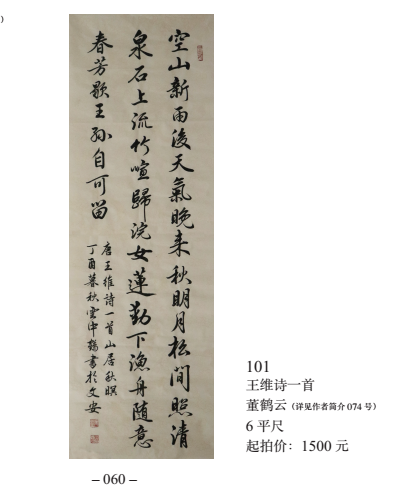 空山新雨後天氣晚来秋明月松間照清
泉石上流竹喧歸浣女蓮動下漁舟随意
春芳歇王孙自可留
唐王維詩一首山居秋暝
丁酉暮秋雲中鶴書於文安
101
王维诗一首
董鹤云（详见作者简介 074 号）
6 平尺
起拍价：1500 元
– 060 –